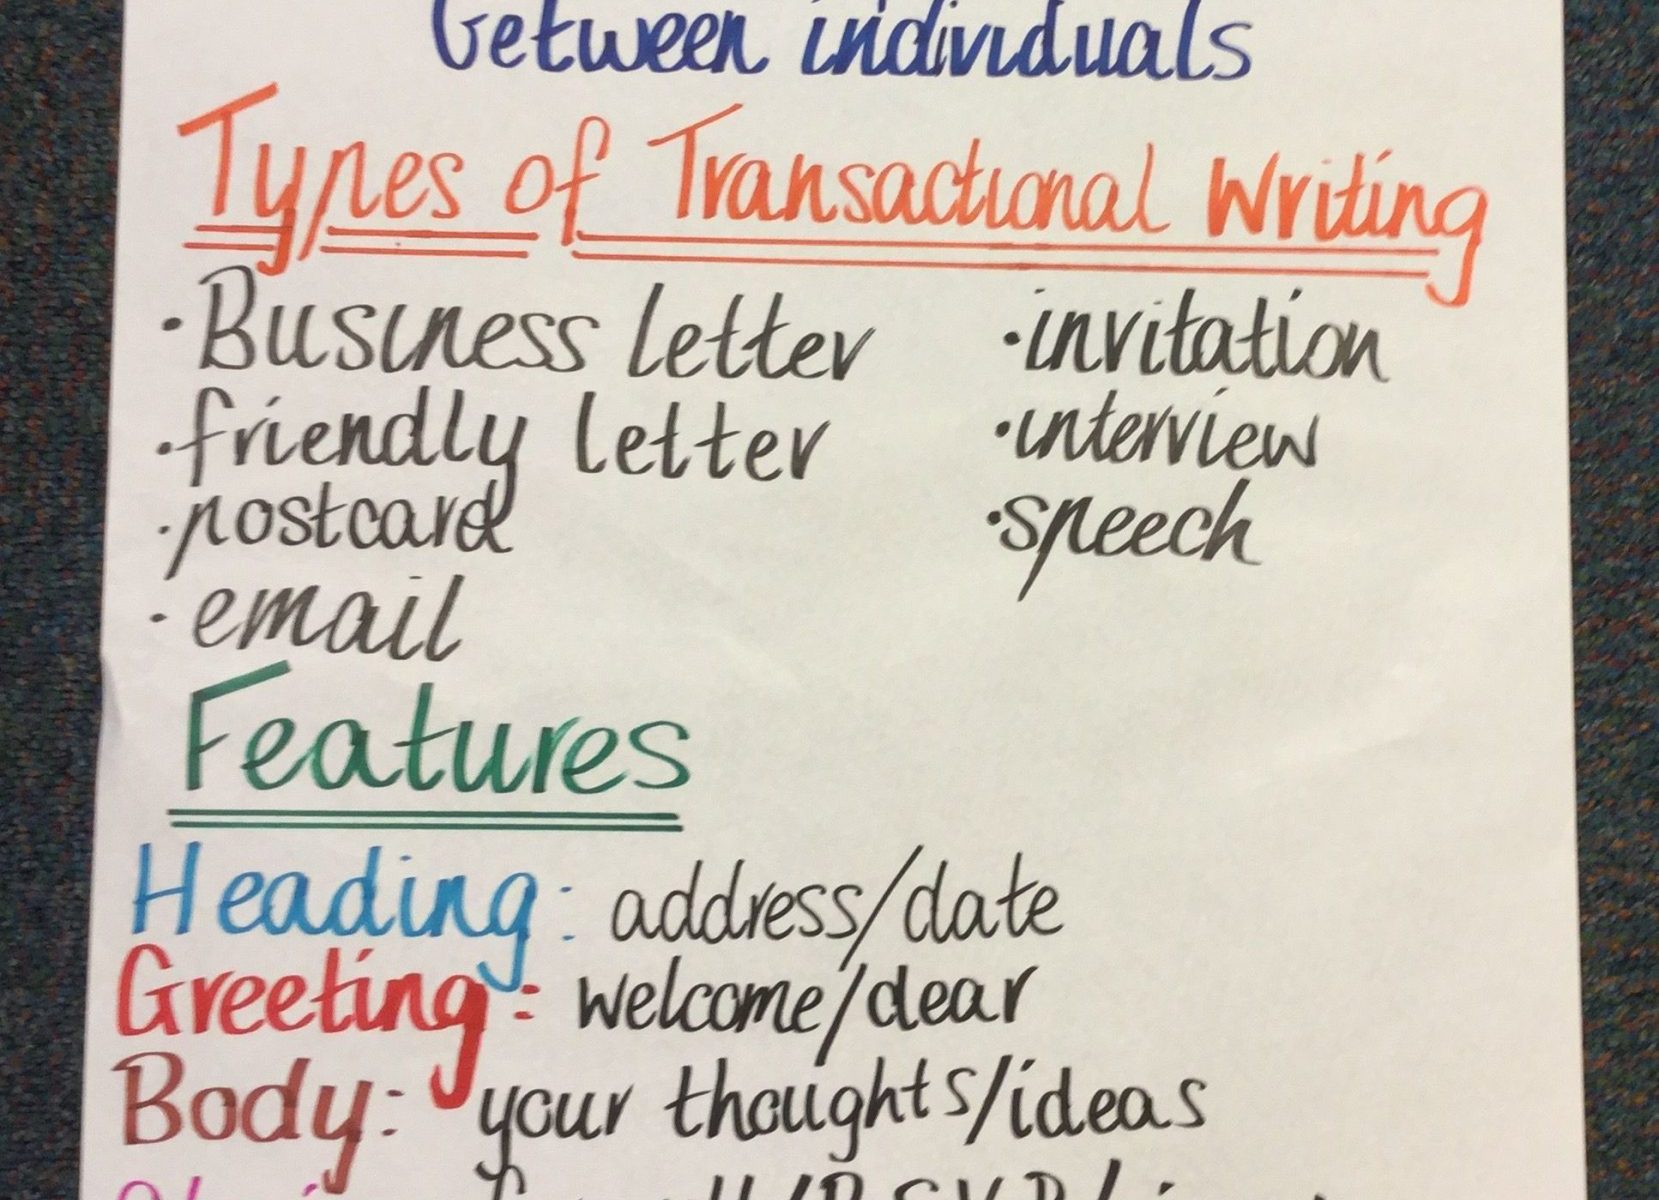 between individuals
Types of Transactional Writing
·Business letter
·friendly letter
·postcard
·email
·invitation
·interview
·speech
Features
Heading: address/date
Greeting: welcome/dear
Body: your thoughts/ideas